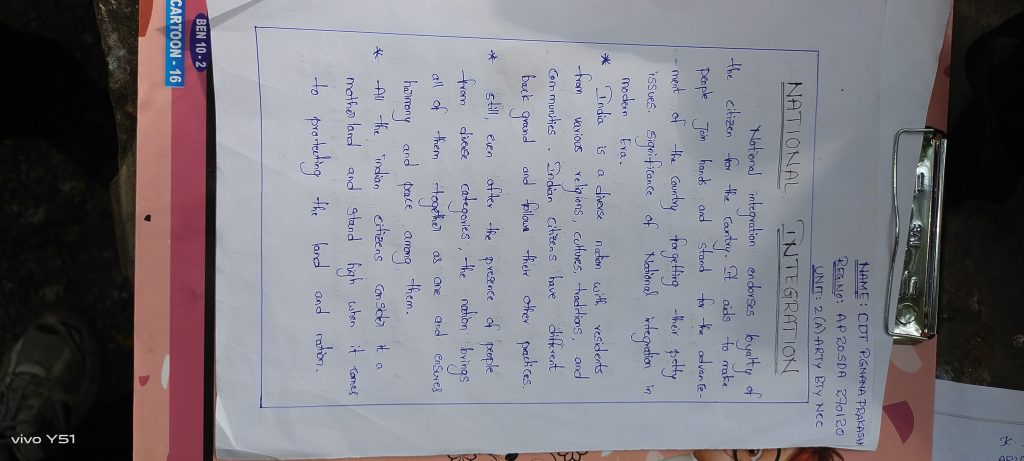 NAME: CDT P.GNANA PRAKASH
REG.NO: AP20SDA 270120
UNIT: 2(A) ARTY BTY NCC
NATIONAL INTEGRATION
National integration endorses loyalty of
the citizen for the Country. It aids to make
people Join hands and stand for the advance-
-ment of the country forgetting their petty
issues. significance of National integration in
modern Era.
* India is a diverse nation with residents
from various religions, cultures, traditions, and
Communities. Indian citizens have different
back ground and follows their other practices.
* still, even after the presence of people
from divese categories, the nation brings
all of them together as one and ensures
harmony and peace among them.
* All the indian citizens consider it a
motherland and stand high when it comes
to protecting the land and nation.
BEN 10 - 2
CARTOON - 16
vivo Y51